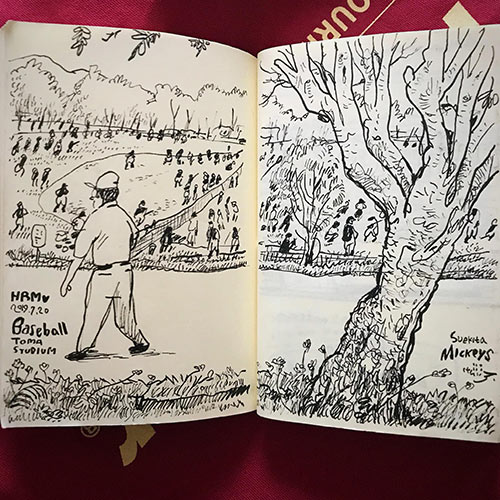 OUR
HRMu
2019.7.20
Baseball
TOMA
STUDIUM
Suekita
MICKEYS